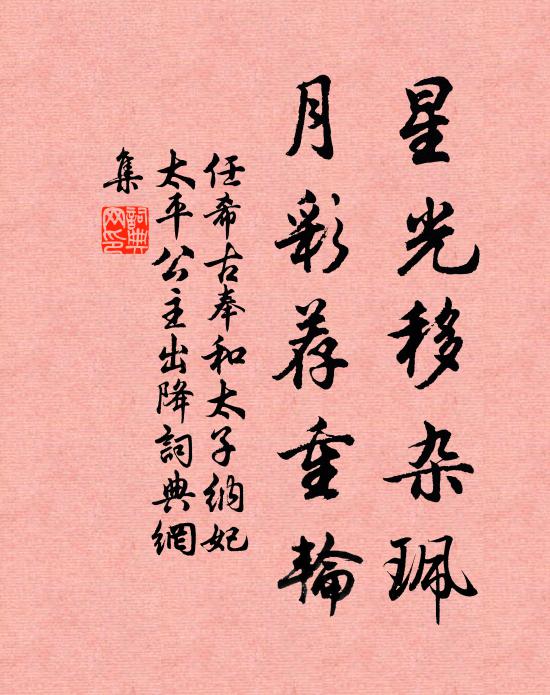 星光移杂珮
月彩荐重輪
任希古奉和太子納妃
太平公主出降詞典網
集
詞典
网印